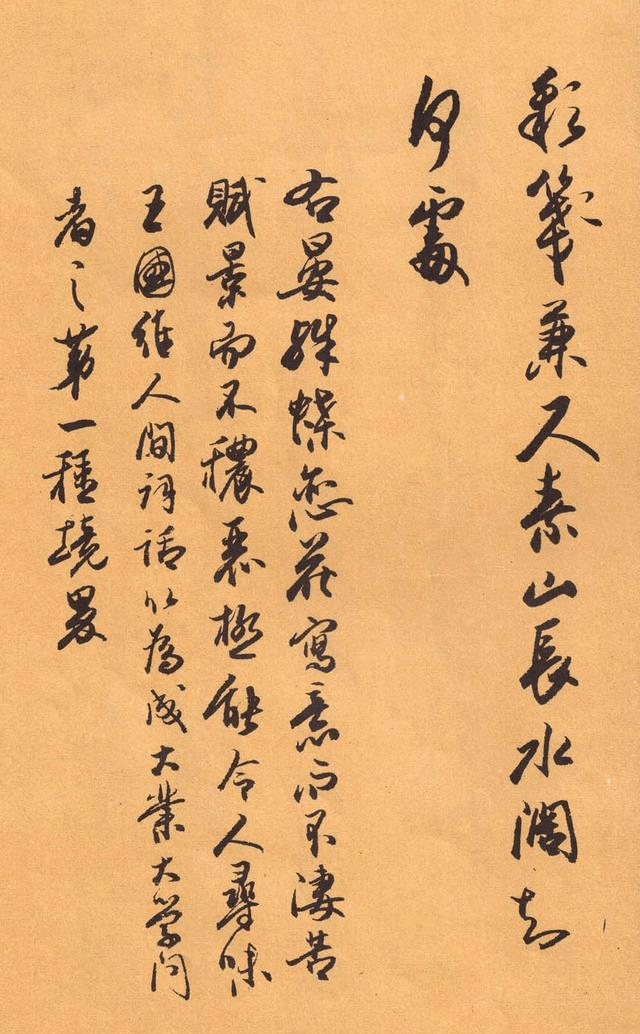 彩箋兼尺素山長水濶知
何處
右晏殊蝶恋花寫意而不淒苦
賦景而不穠極能令人尋味
王國維人間詞話以為成大業大学问
者之第一種境界